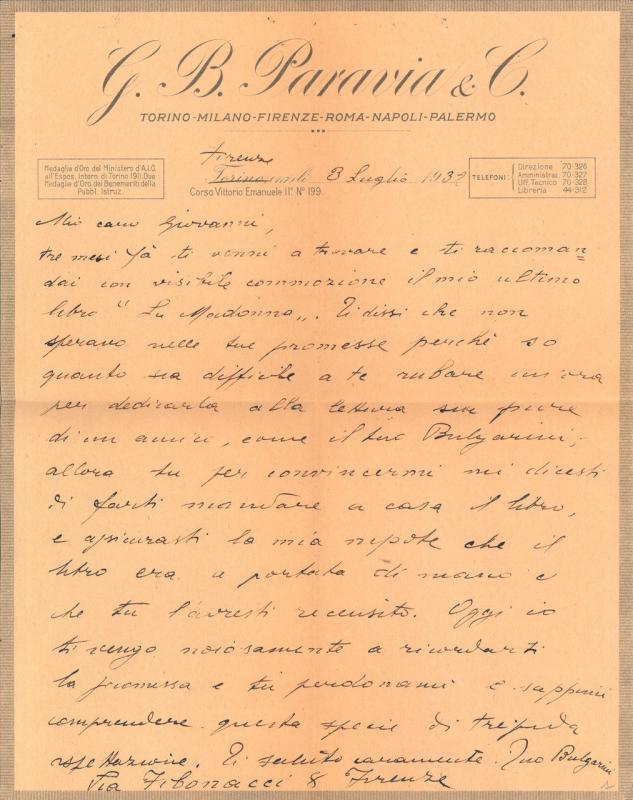 G. B. Paravia & C.
TORINO-MILANO-FIRENZE-ROMA-NAPOLI-PALERMO
Medaglia d'Oro del Ministero d'A.I.C.
all'Espos. Intern. di Torino 1911. Due
Medaglie d'Oro dei Benemeriti della
Pubbl. Istruz.
Firenze
Torino, 3 Luglio 1932
Corso Vittorio Emanuele II° N° 199.
TELEFONI:
Direzione 70-326
Amministraz. 70-327
Uff. Tecnico 70-328
Libreria 44-312
Mio caro Giovanni,
tre mesi fà ti venni a trovare e ti raccoman=
dai con visibile commozione il mio ultimo
libro "La Madonna„. Ti dissi che non
speravo nelle tue promesse perchè so
quanto sia difficile a te rubare un'ora
per dedicarla alla lettura sia pure
di un amico, come il tuo Bulgarini;
allora tu per convincermi mi dicesti
di farti mandare a casa il libro,
e assicurasti la mia nipote che il
libro era a portata di mano e
che tu l'avresti recensito. Oggi io
ti vengo noiosamente a ricordarti
la promessa e tu perdonami e sappimi
comprendere questa specie di trepida
aspettazione. Ti saluto caramente. Tuo Bulgarini
Via Fibonacci 8 Firenze